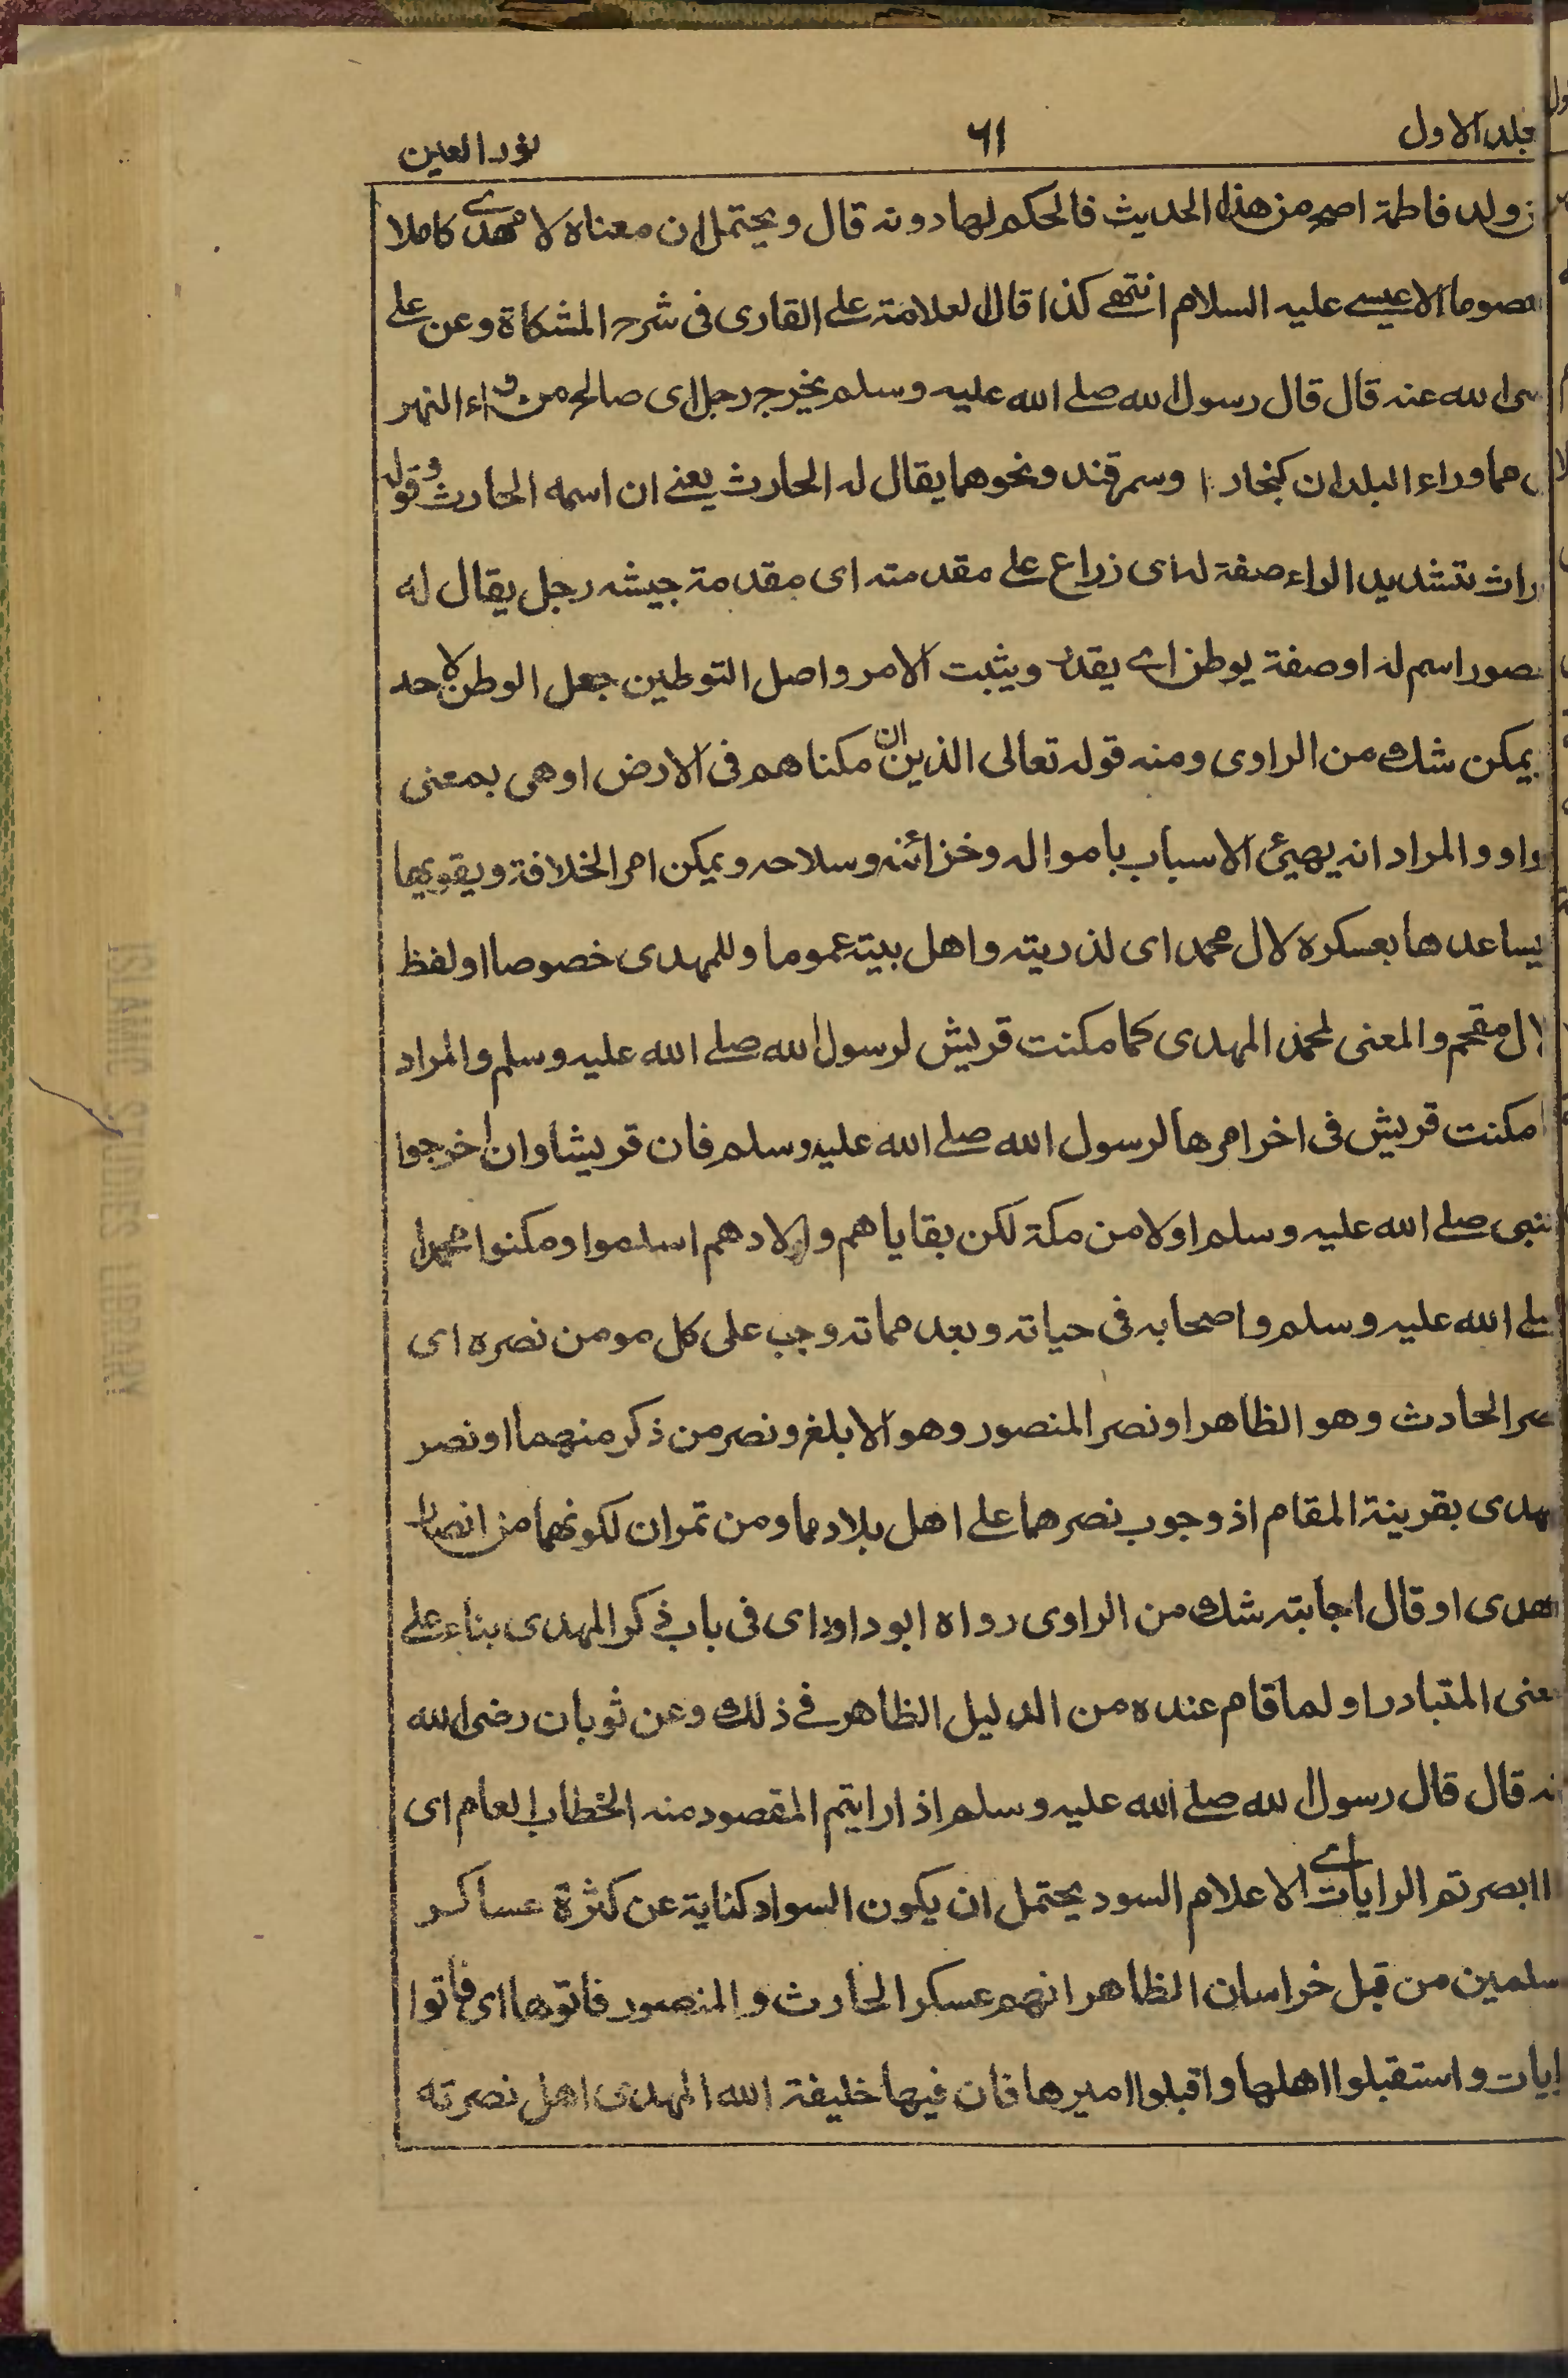 جلد الاول ٦١ نور العين
ن ولد فاطمة اصح من هذا الحديث فالحكم لها دونه قال ويحتمل ان معناه لا مهدى كاملا
عصوما الا عيسے عليه السلام انتهى كذا قال العلامة علے القارى فى شرح المشكاة وعن علے
ضى الله عنه قال قال رسول الله صلے الله عليه وسلم يخرج رجل اى صالح من وراء النهر
مما وراء البلدان كبخارا وسمرقند ونحوهما يقال له الحارث يعنے ان اسمه الحارث وقوله
راث بتشديد الراء صفة له اى زراع علے مقدمته اى مقدمة جيشه رجل يقال له
نصور اسم له او صفة يوطن اے يقدر ويثبت الامر واصل التوطين جعل الوطن لاحد
يمكن شك من الراوى ومنه قوله تعالى الذين ان مكناهم فى الارض او هى بمعنى
واو والمراد انه يهيئ الاسباب باموا له وخزائنه وسلاحه ويمكن امر الخلافة ويقويها
يساعدها بعسكره لال محمد اى لذريته واهل بيته عموما وللمهدى خصوصا او لفظ
لال مقحم والمعنى لمحمد المهدى كما مكنت قريش لرسول الله صلے الله عليه وسلم والمراد
مكنت قريش فى اخر امرها لرسول الله صلے الله عليه وسلم فان قريشا وان اخرجوا
لنبى صلے الله عليه وسلم اولا من مكة لكن بقاياهم واولادهم اسلموا ومكنوا محمدا
صلے الله عليه وسلم واصحابه فى حياته وبعد مماته وجب على كل مومن نصره اى
صر الحادث وهو الظاهر او نصر المنصور وهو الابلغ ونصر من ذكر منهما او نصر
مهدى بقرينة المقام اذ وجوب نصرهما علے اهل بلادهما ومن تمران لكونهما من انصار
مهدى او قال اجابته شك من الراوى رواه ابو داود اى فى باب ذكر المهدى بناء علے
معنى المتبادر او لما قام عنده من الدليل الظاهر فے ذلك وعن ثوبان رضى الله
نه قال قال رسول الله صلے الله عليه وسلم اذا رايتم المقصود منه الخطاب العام اى
ا ابصرتم الرايات اے الاعلام السود يحتمل ان يكون السواد كناية عن كثرة عساكر
سلمين من قبل خراسان الظاهر انهم عسكر الحارث والمنصور فاتوها اى فاتوا
رايات واستقبلوا اهلها واقبلوا اميرها فان فيها خليفة الله المهدى اهل نصرته